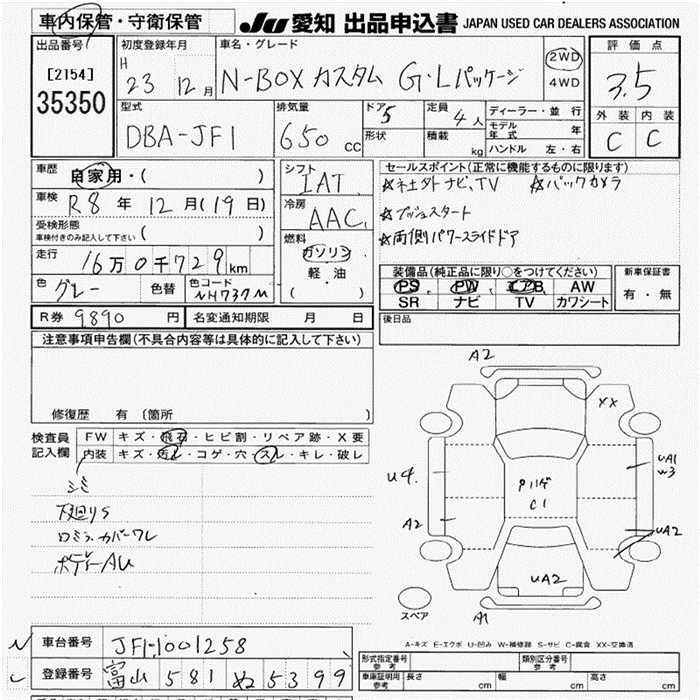 車内保管・守衛保管 JU 愛知 出品申込書 JAPAN USED CAR DEALERS ASSOCIATION
出品番号 初度登録年月 車名・グレード 評価点
[2154] H 23 年 12 月 N-BOX カスタム G・Lパッケージ 2WD 4WD 3.5
35350
型式 DBA-JF1 排気量 650 cc ドア 5 定員 4人 ディーラー・並行 外装 内装
形状 積載 kg モデル年式 年 C C
ハンドル 左・右
車歴 自家用・( ) シフト IAT セールスポイント(正常に機能するものに限ります)
車検 R8 年 12 月 (19 日) 冷房 AAC ☆ネ土外ナビ、TV ☆バックカメラ
受検形態 ( ) ☆プッシュスタート
車検付きのみ記入して下さい
燃料 ガソリン 軽・油 ( ) ☆両側パワースライドドア
走行 16万0千729km
色 グレー 色替 色コード NH737M
装備品(純正品に限り○をつけてください) 新車保証書
PS PW エアB AW 有・無
SR ナビ TV カワシート
R券 9890 円 名変通知期限 月 日 後日品
注意事項申告欄(不具合内容等は具体的に記入して下さい)
修復歴 有 〔箇所
検査員記入欄 FW キズ・飛石・ヒビ割・リペア跡・X要
内装 キズ・汚レ・コゲ・穴・スレ・キレ・破レ
シミ
下廻りS
ロミラーカバーワレ
ボディーAU
A2
XX
U4
UA1
W3
C1
A2
UA2
UA2
A1
スペア
A-キズ E-エクボ U-凹み W-補修跡 S-サビ C-腐食 XX-交換済
車台番号 JF1-1001258
登録番号 富山 581 ぬ 5399
形式指定番号 参考 類別区分番号 参考
車庫証明用 参考 長さ cm 幅 cm 高さ cm